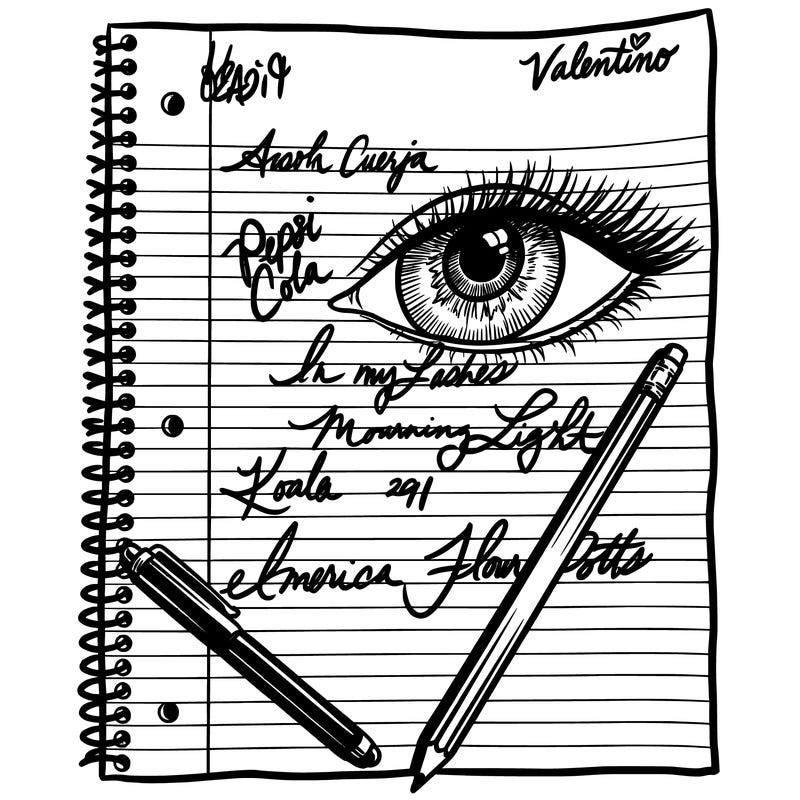 Valentino
Cuerja
Pepsi
Cola
In my Lashes
Mourning Light
Koala 291
America Flour Potts